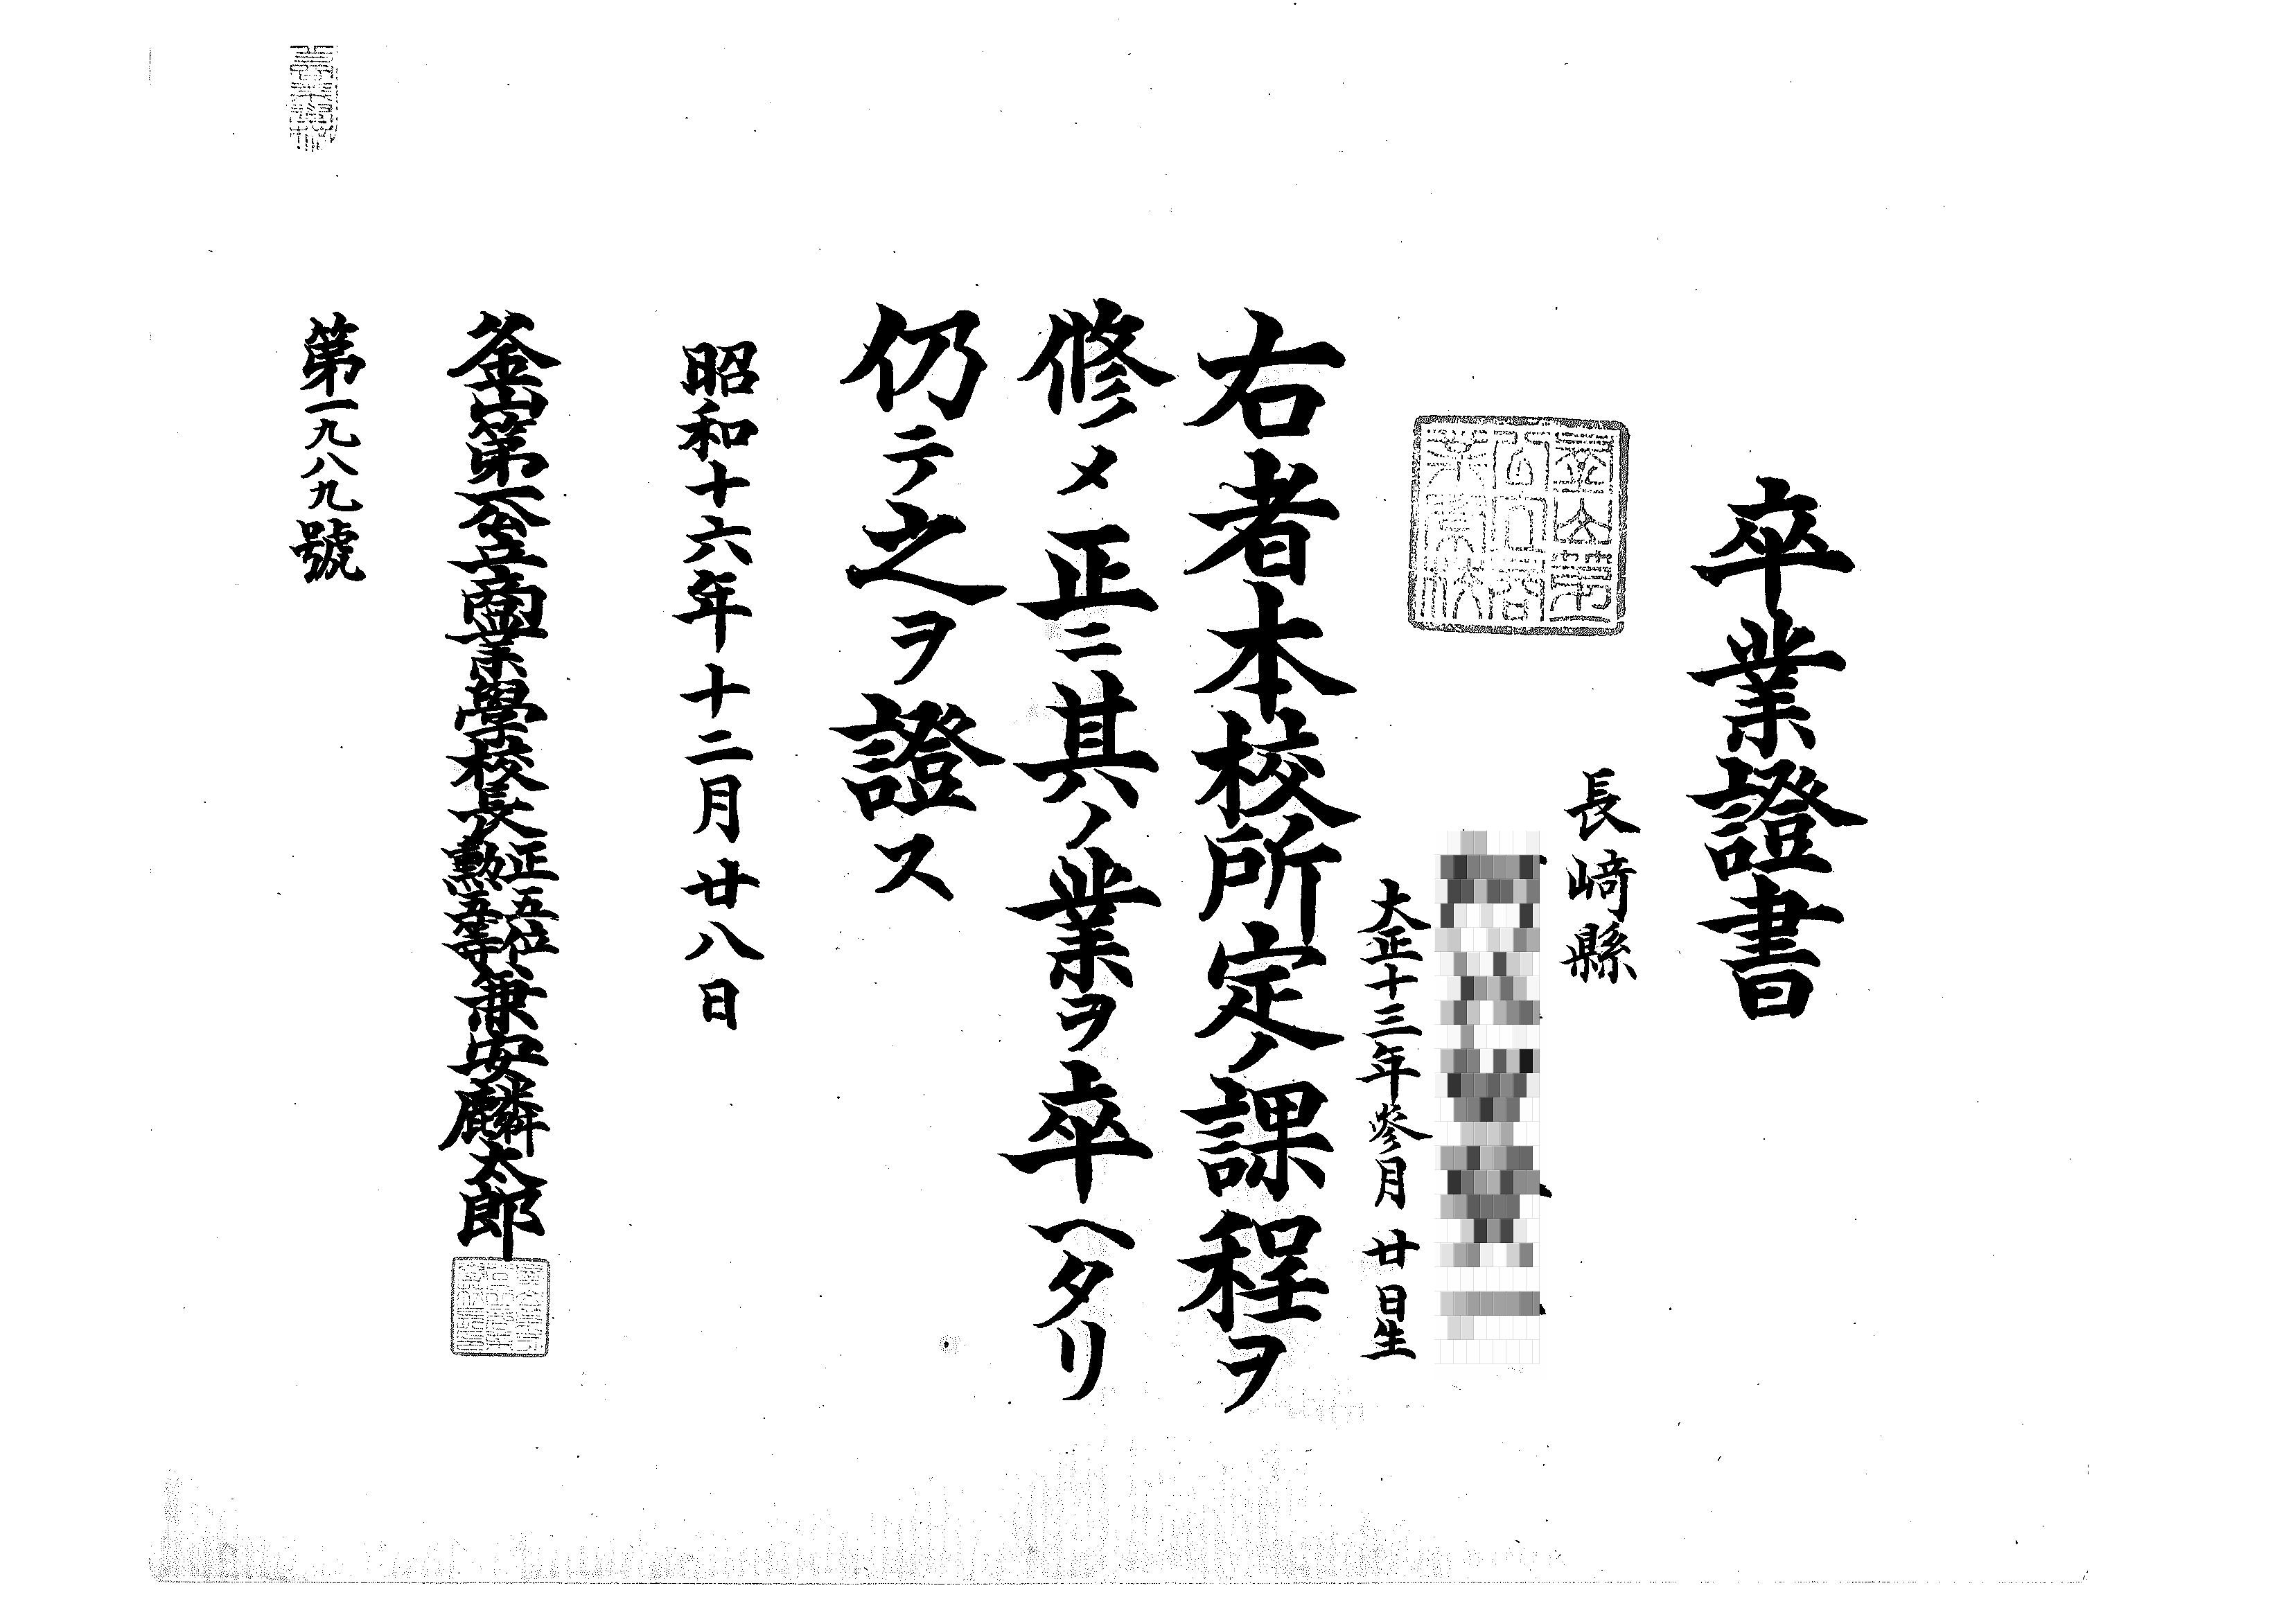 卒業證書
長﨑縣
大正十三年參月廿日生
右者本校所定ノ課程ヲ
修メ正ニ其ノ業ヲ卒ヘタリ
仍テ之ヲ證ス
昭和十六年十二月廿八日
釜山第一公立商業學校長正五位勲五等兼安麟太郎
第一九八九號